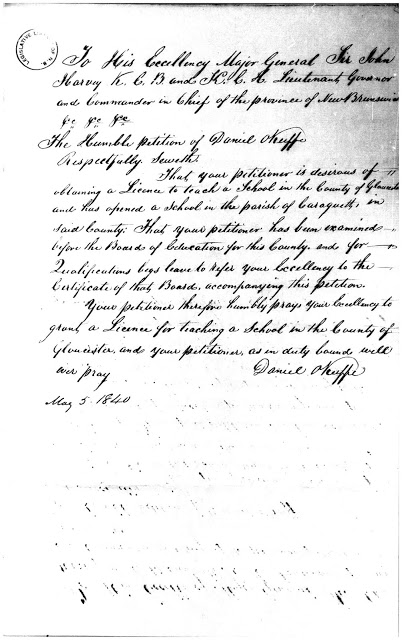 To His Excellency Major General Sir John
Harvey K. C. B and K. C. H. Lieutenant Governor
and Commander in Chief of the province of New Brunswick
&c &c &c
The Humble petition of Daniel OKeeffe
Respectfully Seweth
That your petitioner is desirous of
obtaining a Licence to teach a School in the County of Gloucester
and has opened a School in the parish of Caraquette, in
said County. That your petitioner has been examined
before the Board of Education for this County, and for
Qualifications begs leave to refer your Excellency to the
Certificate of that Board, accompanying this petition.
Your petitioner therefore humbly prays your Excellency to
grant a Licence for teaching a School in the County of
Gloucester, and your petitioner, as in duty bound will
ever pray
Daniel OKeeffe
May 5. 1840